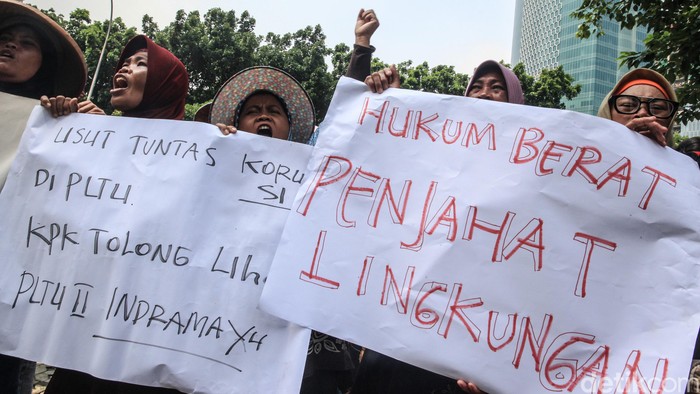 USUT TUNTAS KORU
SI
DI PLTU.
KPK TOLONG LIHA
PLTU II INDRAMAYU
HUKUM BERAT
PENJAHAT
LINGKUNGAN
detikcom